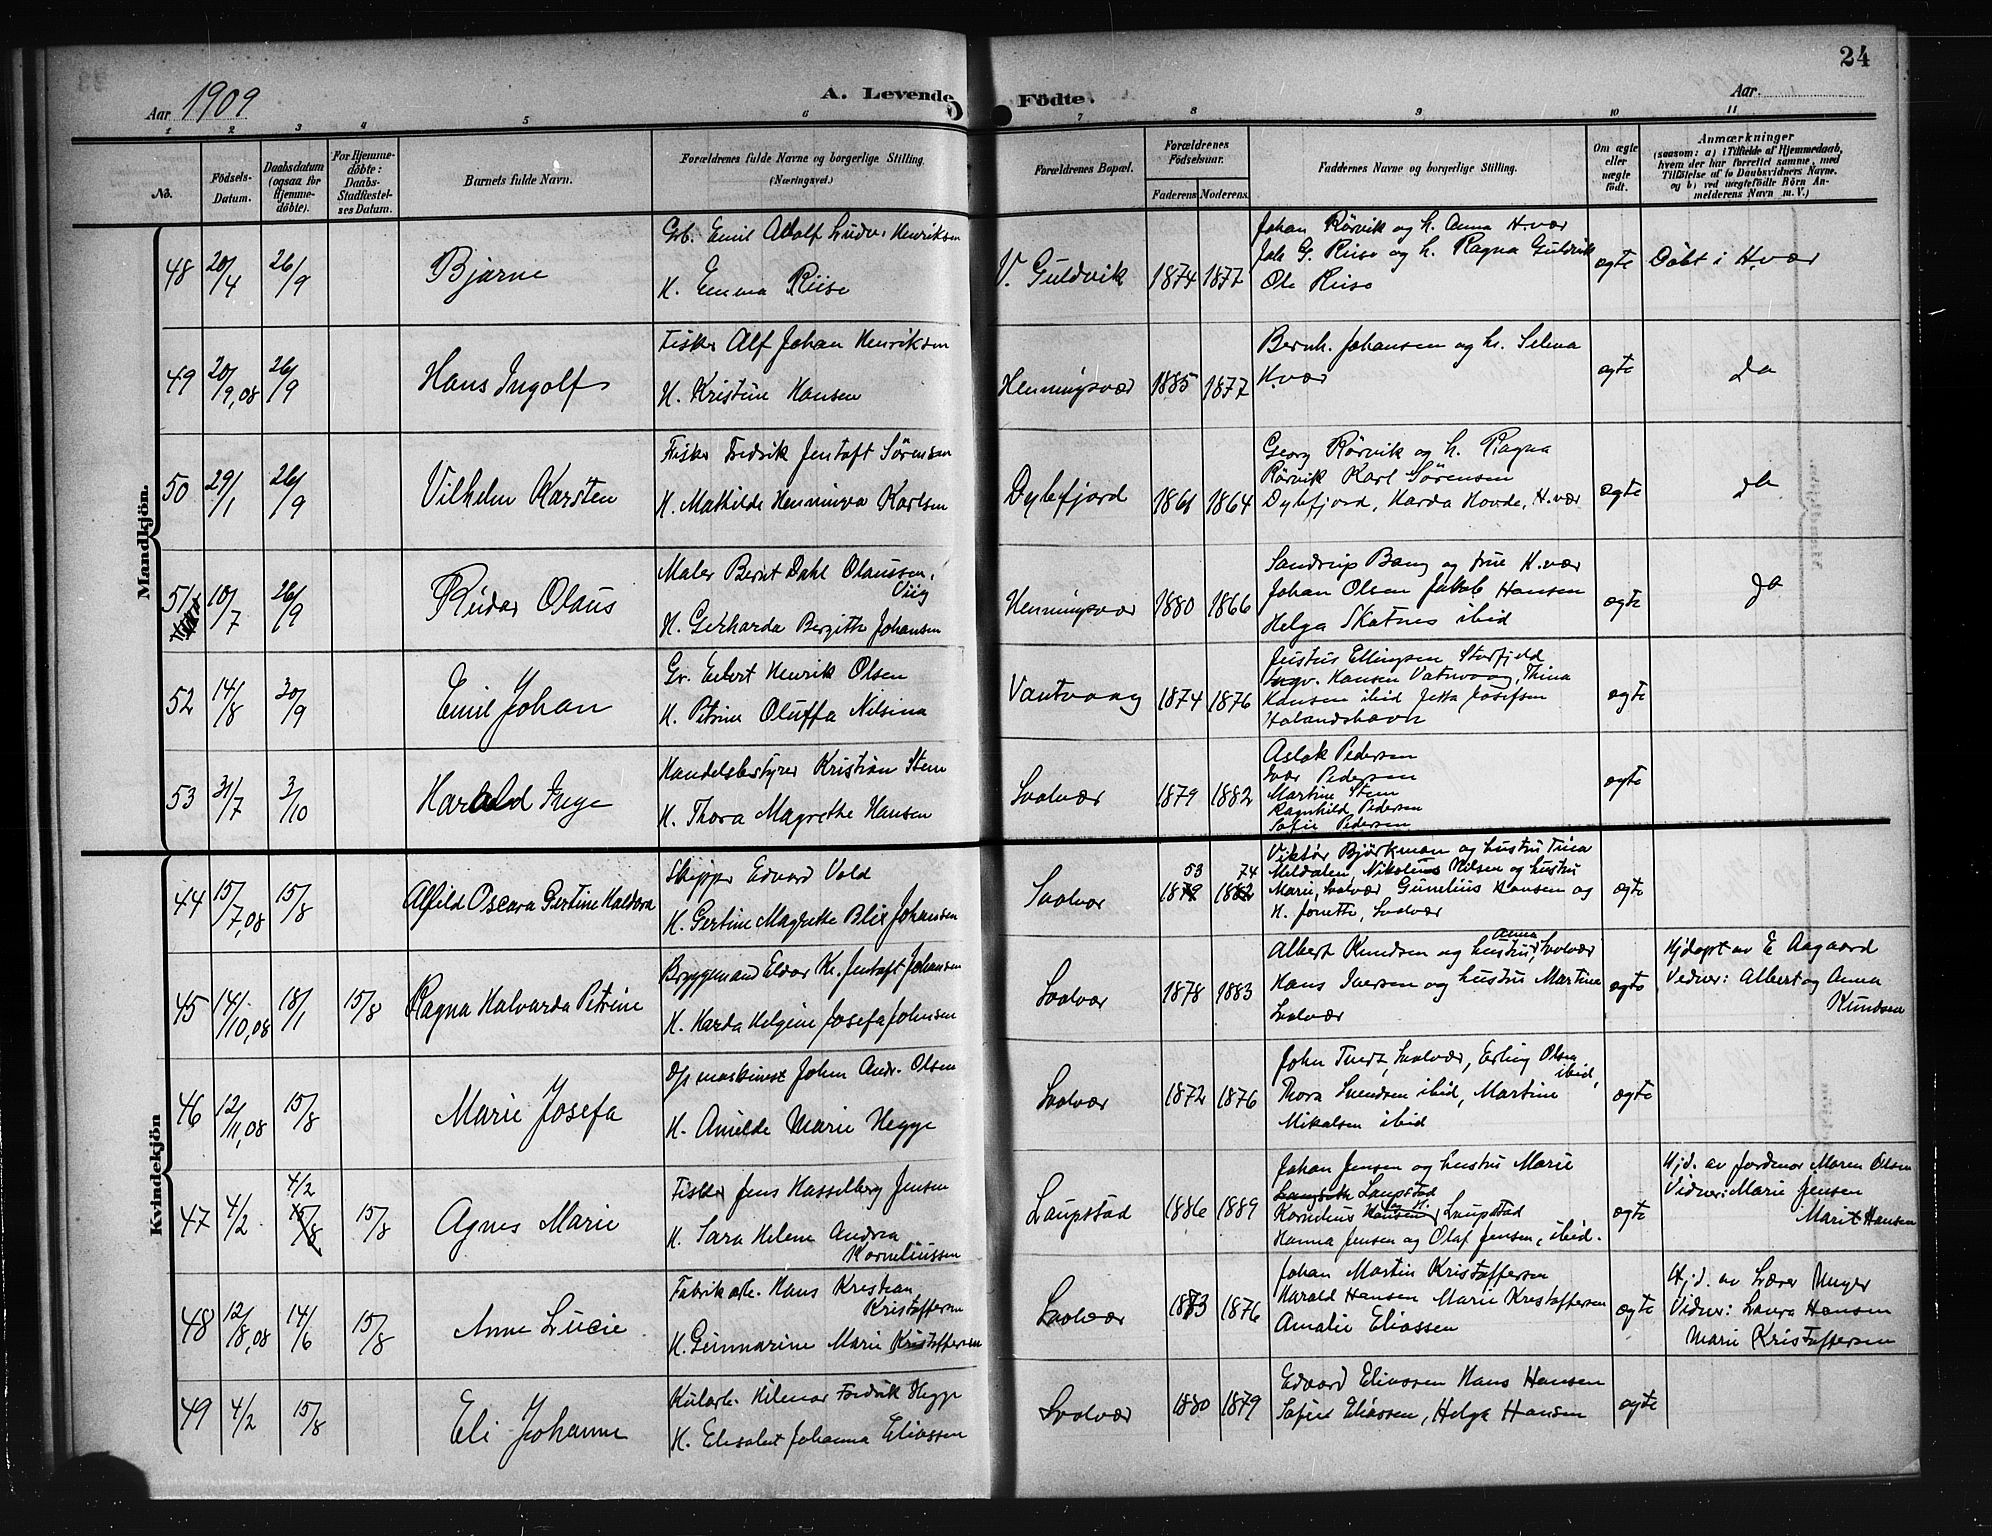 24
Aar 1909
A. Levende Födte.
Aar.
1 2 3 4 5 6 7 8 9 10 11
No.
Födsels-Datum.
Daabsdatum (ogsaa for Hjemme-döbte).
For Hjemme-döbte: Daabs-Stadfæstel-ses Datum.
Barnets fulde Navn.
Forældrenes fulde Navne og borgerlige Stilling. (Næringsvei.)
Forældrenes Bopæl.
Forældrenes Födselsaar.
Faderens Moderens
Faddernes Navne og borgerlige Stilling.
Om ægte eller uægte födt.
Anmærkninger (saasom: a) i Tilfælde af Hjemmedaab, hvem der har forrettet samme, med Tilföielse af to Daabsvidners Navne, og b) ved uægtefödte Börn An-melderens Navn m. V.)
Mandkjön.
48 20/4 26/9 Bjarne
Grb. Emil Adolf Ludv. Henriksen
H. Emma Riise
V. Guldvik 1874 1877
Johan Rørvik og h. Anna H.vær
Joh G. Riise og h. Ragna Guldvik
Ole Riise
ægte Døbt i H.vær
49 20/9,08 26/9 Hans Ingolf
Fisker Alf Johan Henriksen
H. Kristine Hansen
Henningsvær 1885 1877
Bernh. Johansen og h. Selma
H.vær
ægte Do
50 29/1 26/9 Vilhelm Karsten
Fisker Fredrik Jentoft Sörensen
H. Mathilde Henninva Karlsen
Dybfjord 1861 1864
Georg Rørvik og h. Ragna
Rørvik Karl Sørensen
Dybfjord, Harda Hovde, H.vær
ægte Do
51 10/7 26/9 Reidar Olaus
Maler Bernt Dahl Olaussen
Viig
H. Gerharda Bergitte Johansen
Henningsvær 1880 1866
Sandrup Bang og frue H.vær
Johan Olsen Jakob Hansen
Helga Skatnes ibid
ægte Do
52 14/8 30/9 Emil Johan
Gr. Edvert Henrik Olsen
H. Petrine Oluffa Nilsina
Vatnvaag 1874 1876
Justus Ellingsen Storfjeld
Ingv. Hansen Vatnvaag, Thina
Hansen ibid Jetta Josefsen
Holandshavn
ægte
53 31/7 3/10 Harald Inge
Handelsbestyrer Kristian Steen
H. Thora Magrethe Hansen
Svolvær 1879 1882
Aslak Pedersen
Ivar Pedersen
Martine Steen
Ragnhild Pedersen
Sofie Pedersen
ægte
Kvindekjön
44 15/7,08 15/8 Alfild Oscara Gertine Haldora
Skipper Edvard Vold
H. Gertine Magrette Blix Johansen
Svolvær 1879 53 1882 74
Viktor Bjørkman og hustru Tina
Meldalen, Nikolaus Nilsen og hustru
Marie, Svolvær Gunelius Hansen og
H. Jonette, Svolvær
ægte
45 14/10,08 18/1 15/8 Ragna Halvarda Petrine
Bryggemand Eldor Kr. Jentoft Johansen
H. Harda Helgine Josefa Johnsen
Svolvær 1878 1883
Albert Knudsen og hustru Anna Svolvær
Hans Iversen og hustru Martina
Svolvær
ægte
Hjdøpt av E Aagaard
Vidner: Albert og Anna
Knudsen
46 12/11,08 15/8 Marie Josefa
D/s maskinist Johan Andr. Olsen
H. Amilde Marie Hegge
Svolvær 1872 1876
John Svolvær, Erling Olsen ibid,
Thora Svendsen ibid, Martine
Mikalsen ibid
ægte
47 4/2 4/2 15/8 15/8 Agnes Marie
Fisker Jens Hasselberg Jensen
H. Sara Helene Andrea
Korneliussen
Laupstad 1886 1889
Johan Jensen og hustru Marie
Laupstad
Kornelius Hansen og H. Laupstad
Hanna Jensen og Olaf Jensen, ibid.
ægte
Hjd. av jordmor Maren Olsen
Vidner: Marie Jensen
Marit Hansen
48 12/8,08 14/6 15/8 Anne Lucie
Fabrikarb. Hans Krestian
Kristoffersen
H. Geinmarine Marie Kristoffersen
Svolvær 1873 1876
Johan Martin Kristoffersen
Harald Hansen Marie Krestoffersen
Amalie Eliassen
ægte
Hjd. av Lærer Unger
Vidner: Laura Hansen
Marie Kristoffersen
49 4/2 15/8 Eli Johanne
Kularb. Hilmar Fredrik Hegge
H. Elisabet Johanna Eliassen
Svolvær 1880 1879
Edvard Eliassen Hans Hansen
Sofie Eliassen, Helga Hansen
ægte